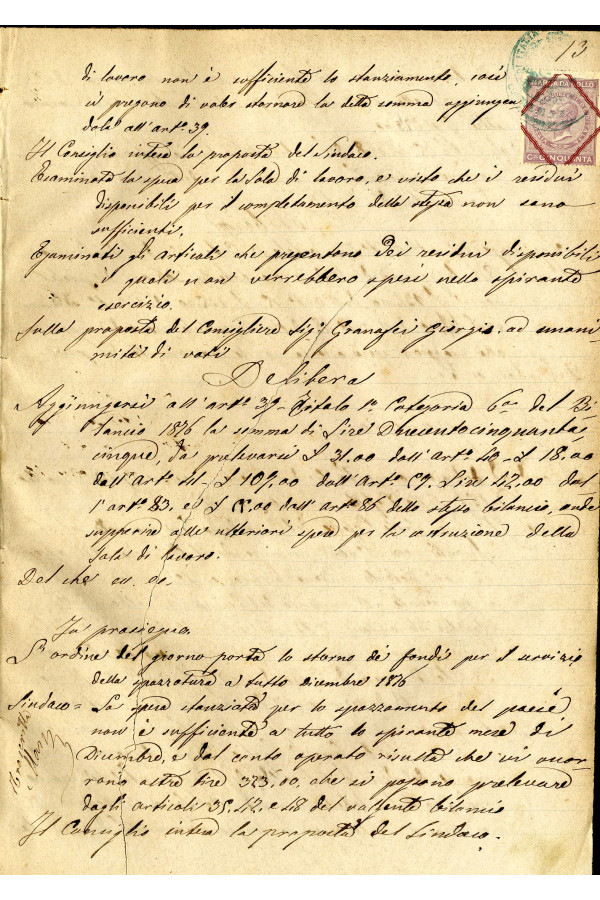 13
MARCA DA BOLLO
C.mi CINQUANTA
di lavoro non è sufficiente lo stanziamento, così
si pregono di voler stornare la detta somma aggiungen
dola all'art.° 39.
Il Consiglio intesa la proposta del Sindaco.
Esaminata la spesa per la Sala di lavoro, e visto che i residui
disponibili per il completamento della stessa non sono
sufficienti.
Esaminati gli articoli che presentono dei residui disponibili
i quali non verrebbero spesi nello spirante
esercizio.
Sulla proposta del Consigliere Sig.r Granafei Giorgio, ad unani
mità di voti
Delibera
Aggiungersi all'art.° 39 Titolo 1° Categoria 6a del Bi
lancio 1876 la somma di Lire Duecentocinquanta
cinque, da prelevarsi £ 31.00 dall'Art.° 40 - £ 18.00
dall'Art.° 41 - £ 109.00 dall'Art.° Lire 42.00 dal
l'art.° 83. e £ dall'art.° 86 dello stesso bilancio, onde
supperire alle ulteriori spese per la costruzione della
Sala di lavoro.
Del che
In prosieguo.
L'ordine del giorno porta lo storno dei fondi per il servizio
della spazzatura a tutto dicembre 1876
Sindaco = La spesa stanziata per lo spazzamento del paese
non è sufficiente a tutto lo spirante mese di
Dicembre, e dal conto operato risulta che vi occor
rono altre lire 323,00, che si possono prelevare
dagli articoli 35. 42. e 48 del vallente bilancio
Il Consiglio intesa la proposta del Sindaco.